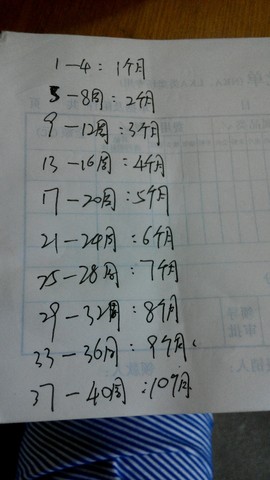 1-4：1个月
5-8周：2个月
9-12周：3个月
13-16周：4个月
17-20周：5个月
21-24周：6个月
25-28周：7个月
29-32周：8个月
33-36周：9个月
37-40周：10个月